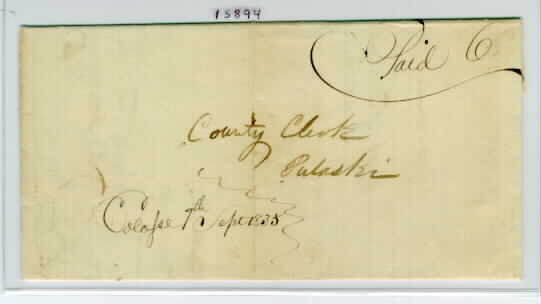 15894
Paid 6
County Clerk
Pulaski
Colosse 7th Sept 1835